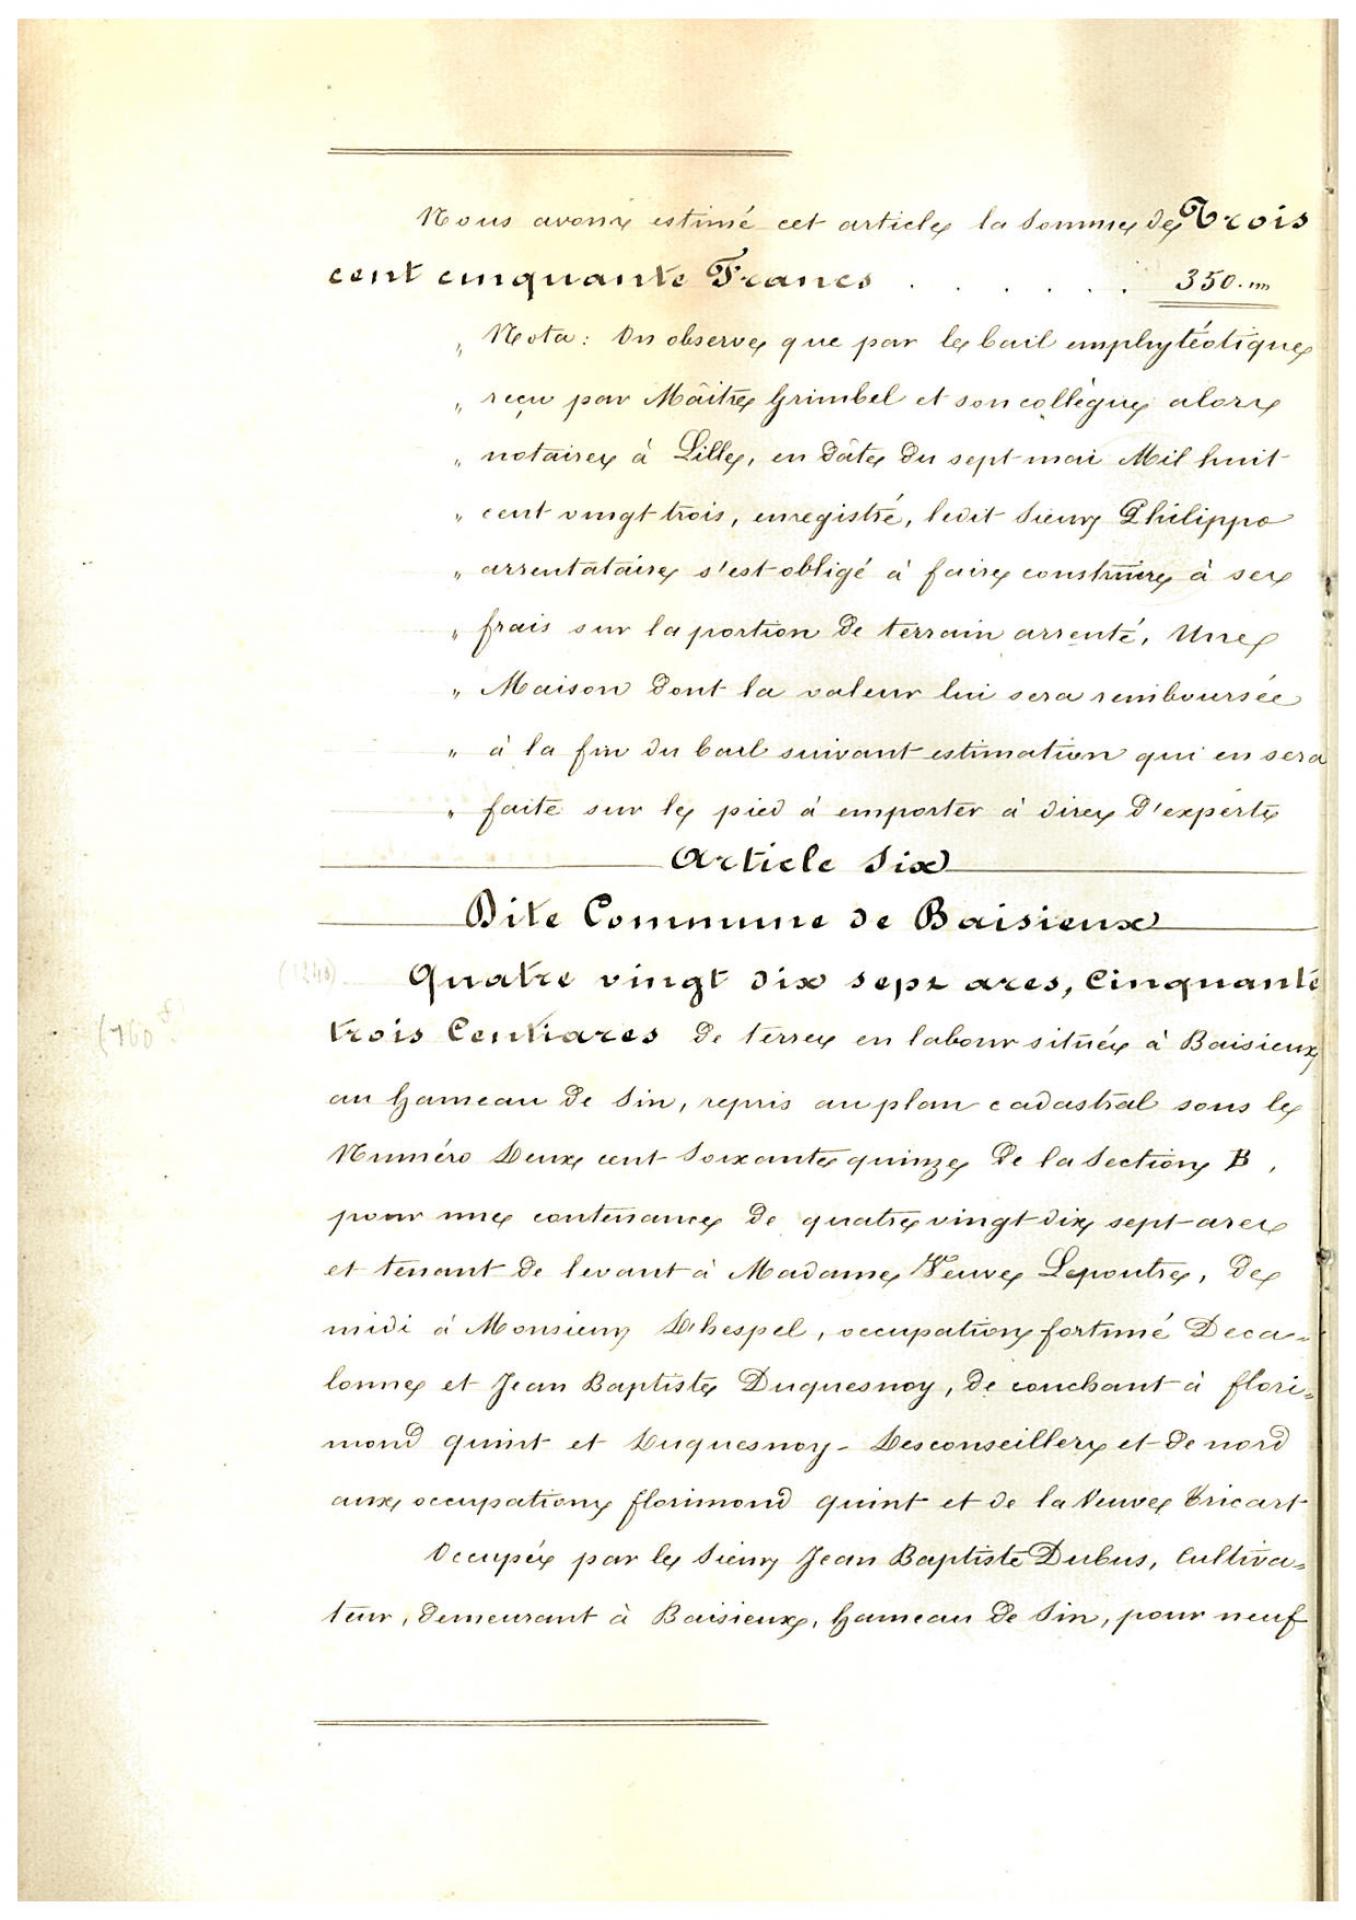 Nous avons estimé cet article la somme de Trois
cent cinquante Francs . . . . . . 350.""
" Nota : On observe que par le bail emphytéotique
" reçu par Mâitre Grimbel et son collègue alors
" notaires à Lille, en dâte du sept mai Mil huit
" cent vingt trois, enregistré, ledit Sieur Philippo
" arrentataire s'est obligé à faire construire à ses
" frais sur la portion de terrain arrenté, Une
" Maison dont la valeur lui sera remboursée
" à la fin du bail suivant estimation qui en sera
" faite sur le pied à emporter à dire d'experts
Article Six
Dite Commune de Baisieux
(1240) Quatre vingt dix sept ares, Cinquante
(760 f
trois Centiares de terre en labour située à Baisieux
au hameau de Sin, repris au plan cadastral sous le
Numéro Deux cent Soixante quinze de la Section B,
pour une contenance de quatre vingt dix sept ares
et tenant de levant à Madame Veuve Lepoutre, de
midi à Monsieur D'hespel, occupation fortuné Deca=
lonne et Jean Baptiste Duquesnoy, de couchant à flori=
mond quint et Duquesnoy - Desconseillers et de nord
aux occupations florimond quint et de la Veuve Tricart
Occupée par le Sieur Jean Baptiste Dubus, Cultiva=
teur, demeurant à Baisieux, hameau de Sin, pour neuf